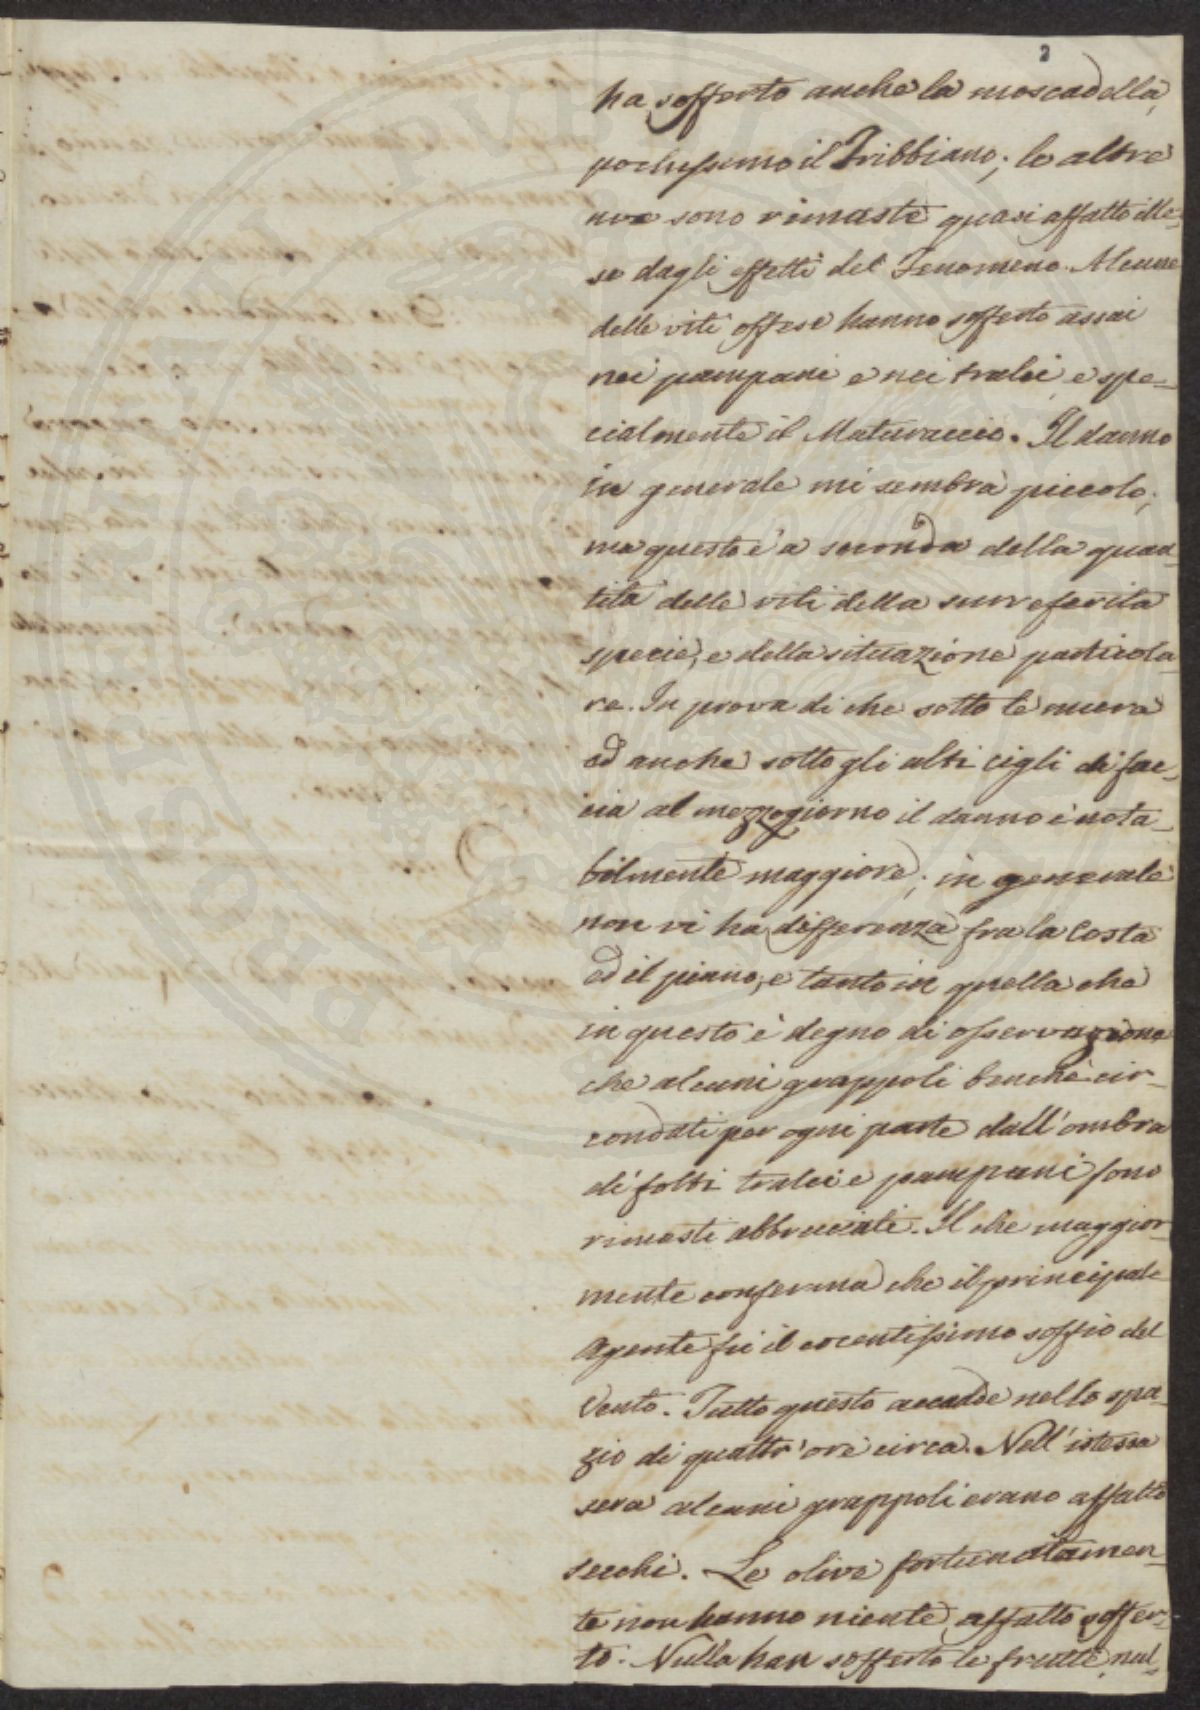 3
ha sofferto anche la moscadella,
pochissimo il Tribbiano; le altre
uve sono rimaste quasi affatto ille-
se dagli effetti del Fenomeno. Alcune
delle viti offese hanno sofferto assai
nei pampani e nei tralci, e spe-
cialmente il Maturaccio. Il danno
in generale mi sembra piccolo;
ma questo è a seconda della quan-
tità delle viti della surreferita
specie, e della situazione particola-
re. In prova di che sotto le mura
ed anche sotto gli alti cigli di fac-
cia al mezzogiorno il danno è nota-
bilmente maggiore; in generale
non vi ha differenza fra la Costa
ed il piano, e tanto in quella che
in questo è degno di osservazione
che alcuni grappoli benchè cir-
condati per ogni parte dall'ombra
di folti tralci e pampani sono
rimasti abbruciati. Il che maggior-
mente conferma che il principale
Agente fu il cocentissimo soffio del
Vento. Tutto questo accadde nello spa-
zio di quattr'ore circa. Nell'istessa
sera alcuni grappoli erano affatto
secchi. Le olive fortunatamen-
te non hanno niente affatto soffer-
to. Nulla han sofferto le frutte, nul-
POSITIVAE PVBLICAE